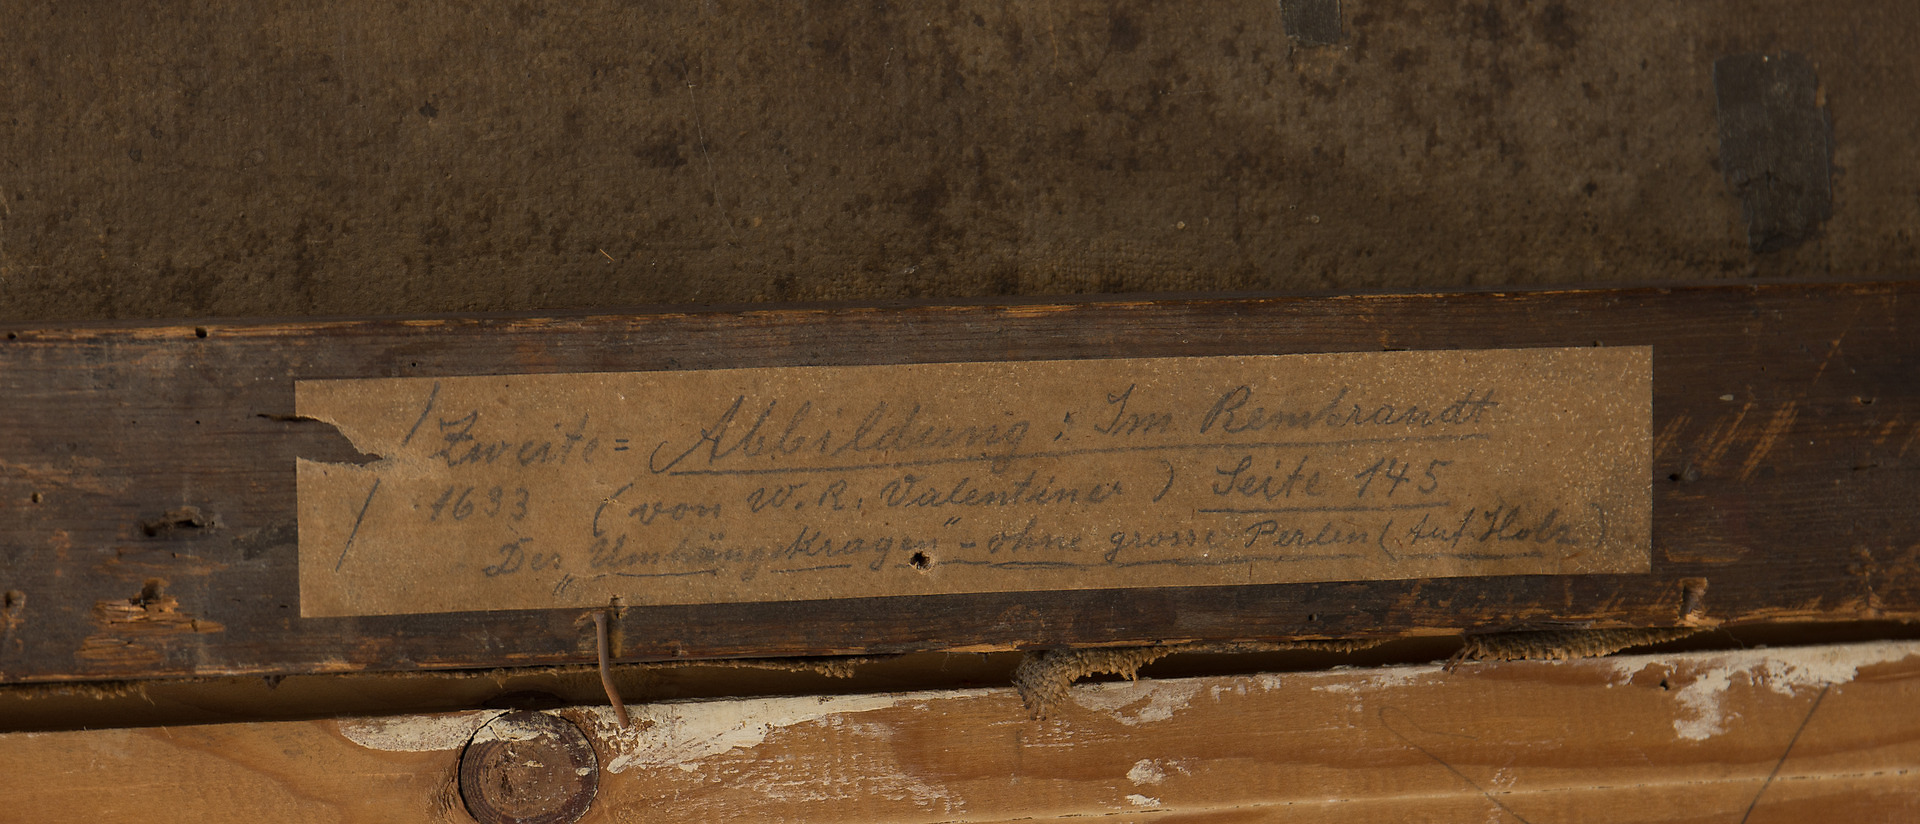 / Zweite = Abbildung : Im Rembrandt
/ 1633 (von W. R. Valentiner) Seite 145
Der „Umhängekragen" - ohne grosse Perlen (Auf Holz)